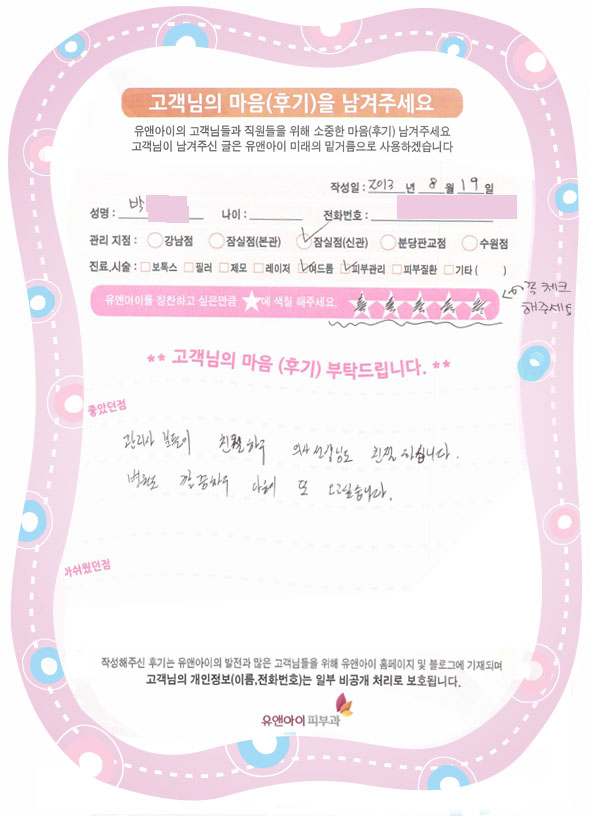 고객님의 마음(후기)을 남겨주세요
유앤아이의 고객님들과 직원들을 위해 소중한 마음(후기) 남겨주세요
고객님이 남겨주신 글은 유앤아이 미래의 밑거름으로 사용하겠습니다
작성일 : 2013 년 8 월 19 일
성명 : 박 나이 : 전화번호 :
관리 지점 : 강남점 잠실점(본관) 잠실점(신관) 분당판교점 수원점
진료,시술 : 보톡스 필러 제모 레이저 여드름 피부관리 피부질환 기타 ( )
유앤아이를 칭찬하고 싶은만큼 ★에 색칠 해주세요.
꼭 체크
해주세요
** 고객님의 마음 (후기) 부탁드립니다. **
좋았던점
관리사 분들이 친절하구 의사 선생님도 친절 하십니다.
병원도 깔끔하구 다음에 또 오고싶습니다.
아쉬웠던점
작성해주신 후기는 유앤아이의 발전과 많은 고객님들을 위해 유앤아이 홈페이지 및 블로그에 기재되며
고객님의 개인정보(이름,전화번호)는 일부 비공개 처리로 보호됩니다.
유앤아이피부과